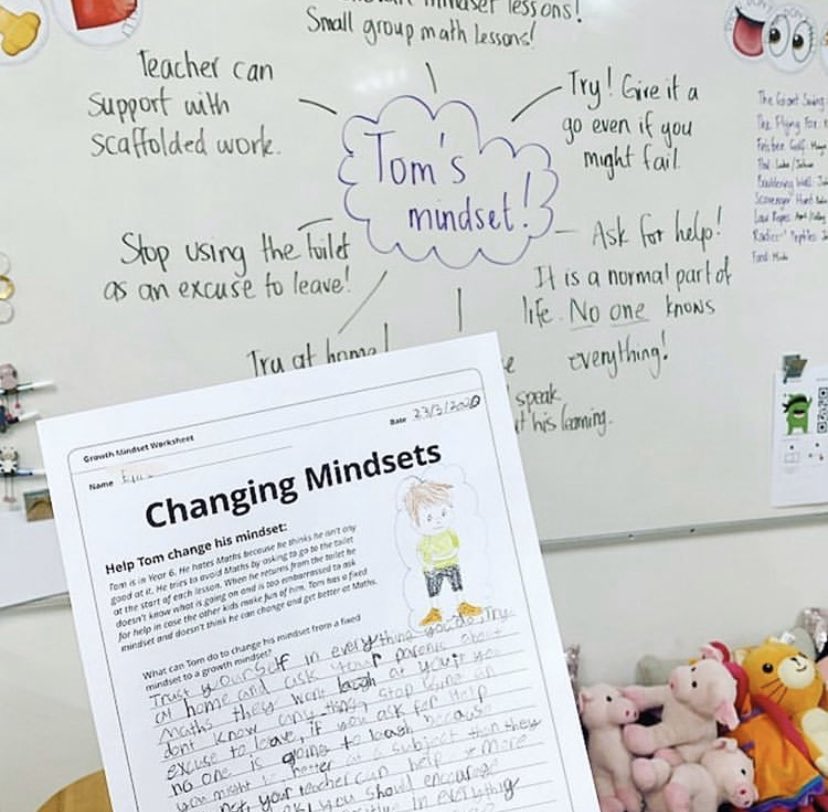 mindset lessons!
Small group math lessons!
Teacher can
support with
scaffolded work.
Try! Give it a
go even if you
might fail.
Tom's
mindset!
Stop using the toilet
as an excuse to leave!
Ask for help!
It is a normal part of
life. No one knows
everything!
Try at home!
speak
his learning.
The Giant Swing
The Flying Fox:
Frisbee Golf:
Bouldering Wall:
Scavenger Hunt
Low Ropes
Reptiles
Food
Growth Mindset Worksheet
Name
Date 23/3/2020
Changing Mindsets
Help Tom change his mindset:
Tom is in Year 6. He hates Maths because he thinks he isn't any
good at it. He tries to avoid Maths by asking to go to the toilet
at the start of each lesson. When he returns from the toilet he
doesn't know what is going on and is too embarrassed to ask
for help in case the other kids make fun of him. Tom has a fixed
mindset and doesn't think he can change and get better at Maths.
What can Tom do to change his mindset from a fixed
mindset to a growth mindset?
Trust yourself in everything you do, Try
at home and ask your parents about
maths they wont laugh at you if you
dont know any thing, stop using an
excuse to leave, if you ask for help
no one is going to laugh because
you might be better at a subject than they
not, your teacher can help more
you should encourage
in everything